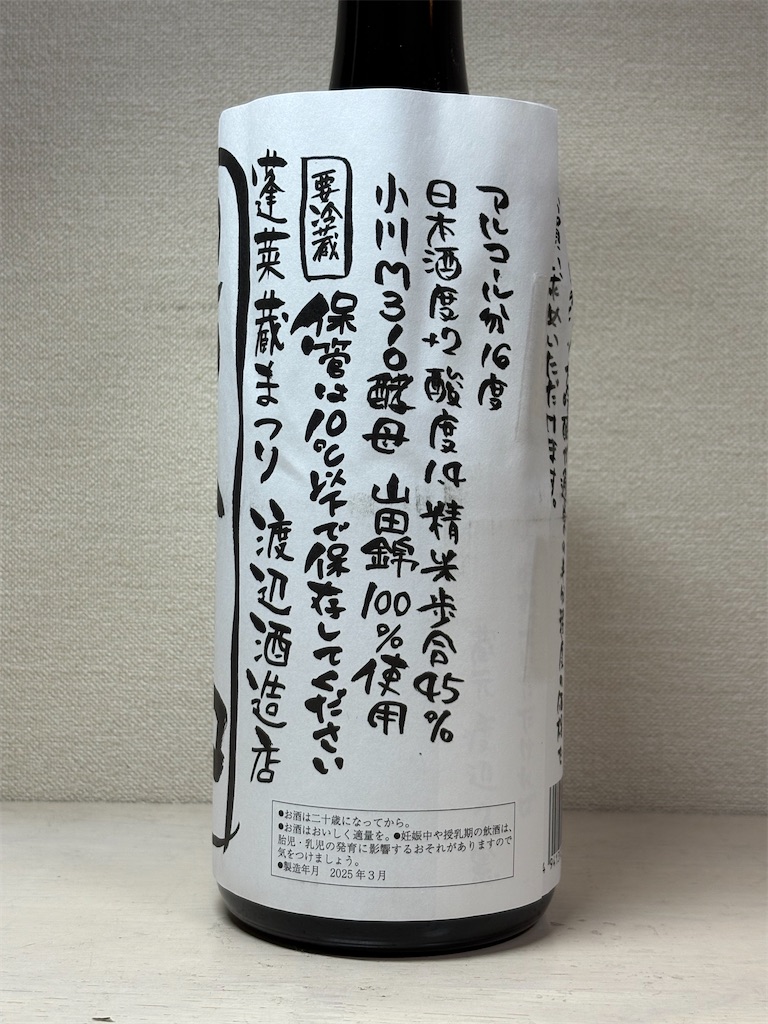 求めいただけます。
アルコール分16度
日本酒度+2 酸度1.4 精米歩合45%
小川M310酵母 山田錦100%使用
要冷蔵
保管は10℃以下で保存してください
蓬莱蔵まつり 渡辺酒造店
●お酒は二十歳になってから。
●お酒はおいしく適量を。●妊娠中や授乳期の飲酒は、
胎児・乳児の発育に影響するおそれがありますので
気をつけましょう。
●製造年月 2025年3月